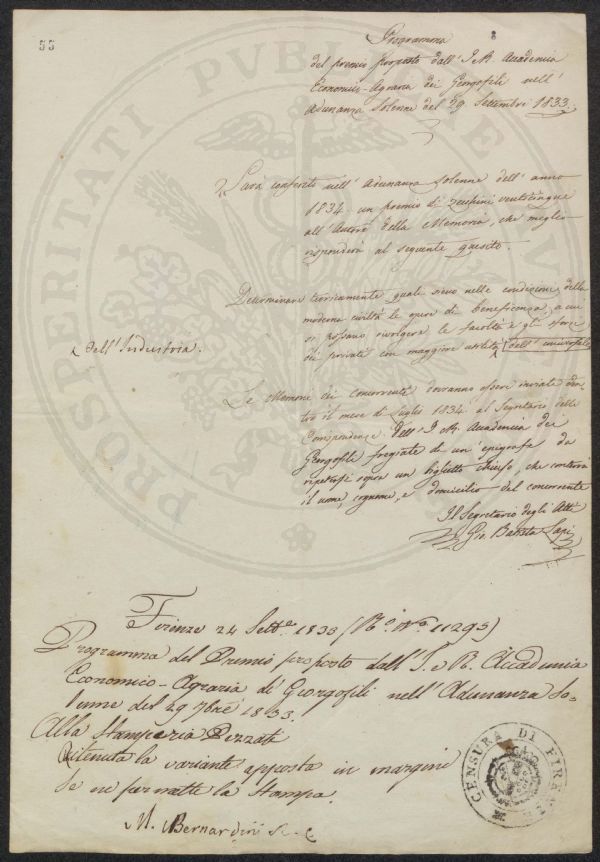 55
Programma
del premio proposto dall' I. R. Accademia
Economico-Agraria dei Georgofili nell'
Adunanza Solenne del 29 Settembre 1833.
Sarà conferito nell' Adunanza solenne dell' anno
1834 un premio di zecchini venticinque
all' Autore della Memoria, che meglio
risponderà al seguente quesito.
Determinare teoricamente quali sieno nelle condizioni della
moderna civiltà le opere di beneficenza, a cui
si possano rivolgere le facoltà e gli sforzi
dei privati con maggiore utilità dell' universale
dell' Industria.
Le Memorie dei concorrenti dovranno essere inviate den-
tro il mese di Luglio 1834 al Segretario delle
Corrispondenze dell' I. R. Accademia dei
Georgofili fregiate di un' epigrafe da
ripetersi sopra un biglietto chiuso, che conterrà
il nome, cognome, e domicilio del concorrente
Il Segretario degli Atti
Gio. Batista Lapi
Firenze 24 Sett.e 1833 (R.o N.o 11295)
Programma del Premio proposto dall' I. e R. Accademia
Economico-Agraria di Georgofili nell' Adunanza So-
lenne del 29 7bre 1833.
Alla Stamperia Pezzati
Ritenuta la variante apposta in margine
Se ne permette la Stampa.
M. Bernardini
CENSURA DI FIRENZE
PROSPERITATI PVBLICAE